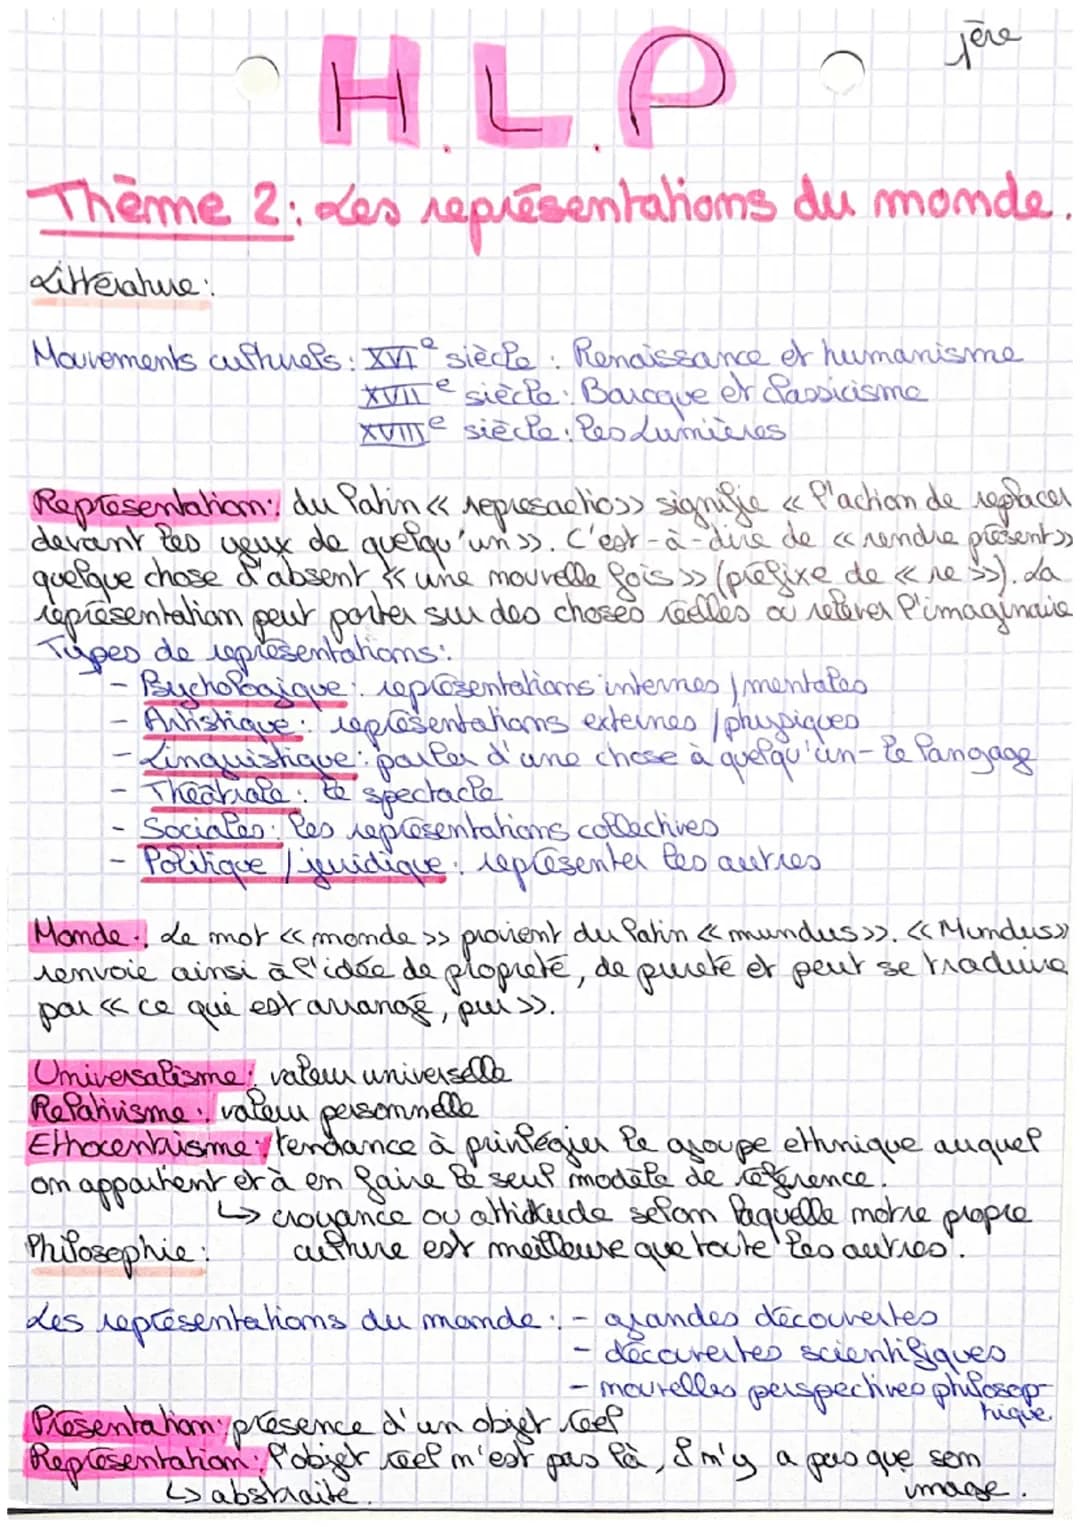 1ère
H.L.P
Thème 2: Les représentations du monde.
Littérature:
Mouvements culturels: XVIe siècle: Renaissance et humanisme
XVIIe siècle: Baroque et classicisme
XVIIIe siècle: les Lumières
Représentation: du latin << represaetio>> signifie << l'action de replacer
devant les yeux de quelqu'un >>. C'est-à-dire de << rendre présent >>
quelque chose d'absent << une nouvelle fois >> (préfixe de << re >>). La
représentation peut porter sur des choses réelles ou relever l'imaginaire
Types de représentations:
- Psychologique: représentations internes / mentales
- Artistique: représentations externes / physiques
- Linguistique: parler d'une chose à quelqu'un - le langage
- Théâtrale: le spectacle
- Sociales: les représentations collectives
- Politique / juridique: représenter les autres
Monde: Le mot << monde >> provient du latin << mundus >>. << Mundus >>
renvoie ainsi à l'idée de propreté, de pureté et peut se traduire
par << ce qui est arrangé, pur >>.
Universalisme: valeur universelle
Relativisme: valeur personnelle
Ethocentrisme: tendance à privilégier le groupe ethnique auquel
on appartient et à en faire le seul modèle de référence.
↳ croyance ou attitude selon laquelle notre propre
culture est meilleure que toute les autres.
Philosophie:
Les représentations du monde: - grandes découvertes
- découvertes scientifiques
- nouvelles perspectives philosop-
hique.
Présentation: présence d'un objet réel
Représentation: l'objet réel n'est pas là, il n'y a pas que son
image.
↳ abstraite.